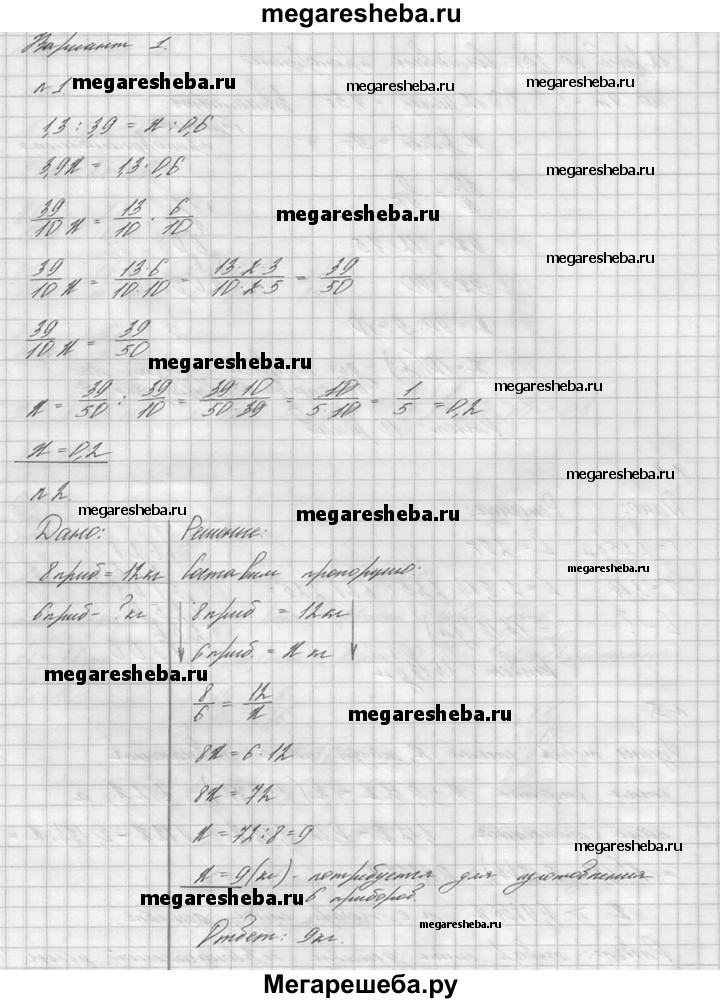 megaresheba.ru
Вариант 1.
n 1 megaresheba.ru megaresheba.ru
1,3 : 3,9 = x : 0,6
3,9x = 1,3 · 0,6
megaresheba.ru
39/10 x = 13/10 · 6/10
megaresheba.ru
megaresheba.ru
39/10 x = 13·6/10·10 = 13·2·3/10·2·5 = 39/50
39/10 x = 39/50
megaresheba.ru
megaresheba.ru
x = 39/50 : 39/10 = 39·10/50·39 = 10/5·10 = 1/5 = 0,2
x = 0,2
megaresheba.ru
n 2.
megaresheba.ru megaresheba.ru
Дано: Решение:
8 приб = 12 кг Составим пропорцию:
megaresheba.ru
6 приб - ? кг 8 приб. = 12 кг
6 приб. = x кг
megaresheba.ru
8/6 = 12/x
megaresheba.ru
8x = 6 · 12
8x = 72
x = 72 : 8 = 9
megaresheba.ru
x = 9 (кг) - потребуется для изготовления
6 приборов.
megaresheba.ru
megaresheba.ru
Ответ: 9 кг.
Мегарешеба.ру